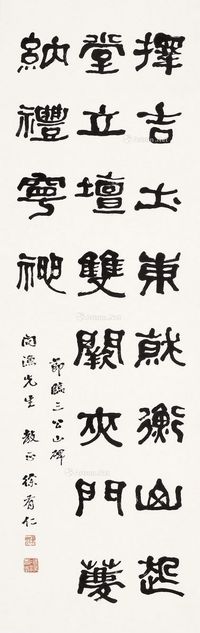 擇吉土東就衡山起
堂立壇雙闕夾門薦
納禮寧神
節臨三公山碑
問漁先生 教正 徐有仁